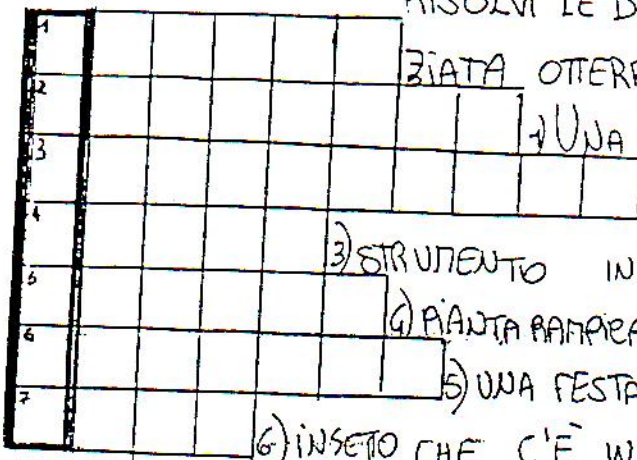 RISOLVI LE D
ZIATA OTTERR
1) UNA
3) STRUMENTO IN
4) PIANTA RAMPICA
5) UNA FESTA
6) INSETTO CHE C'È IN
1
2
3
4
5
6
7